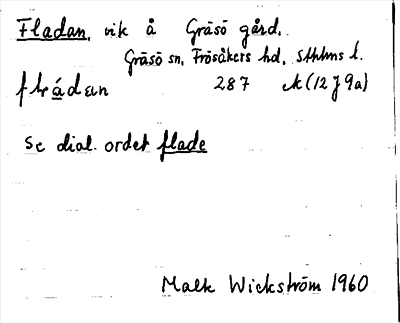 Fladan, vik å Gräsö gård,
Gräsö sn, Frösåkers hd, Sthlms l.
287 ek (12 J 9a)
Se dial. ordet flade
Malk Wickström 1960